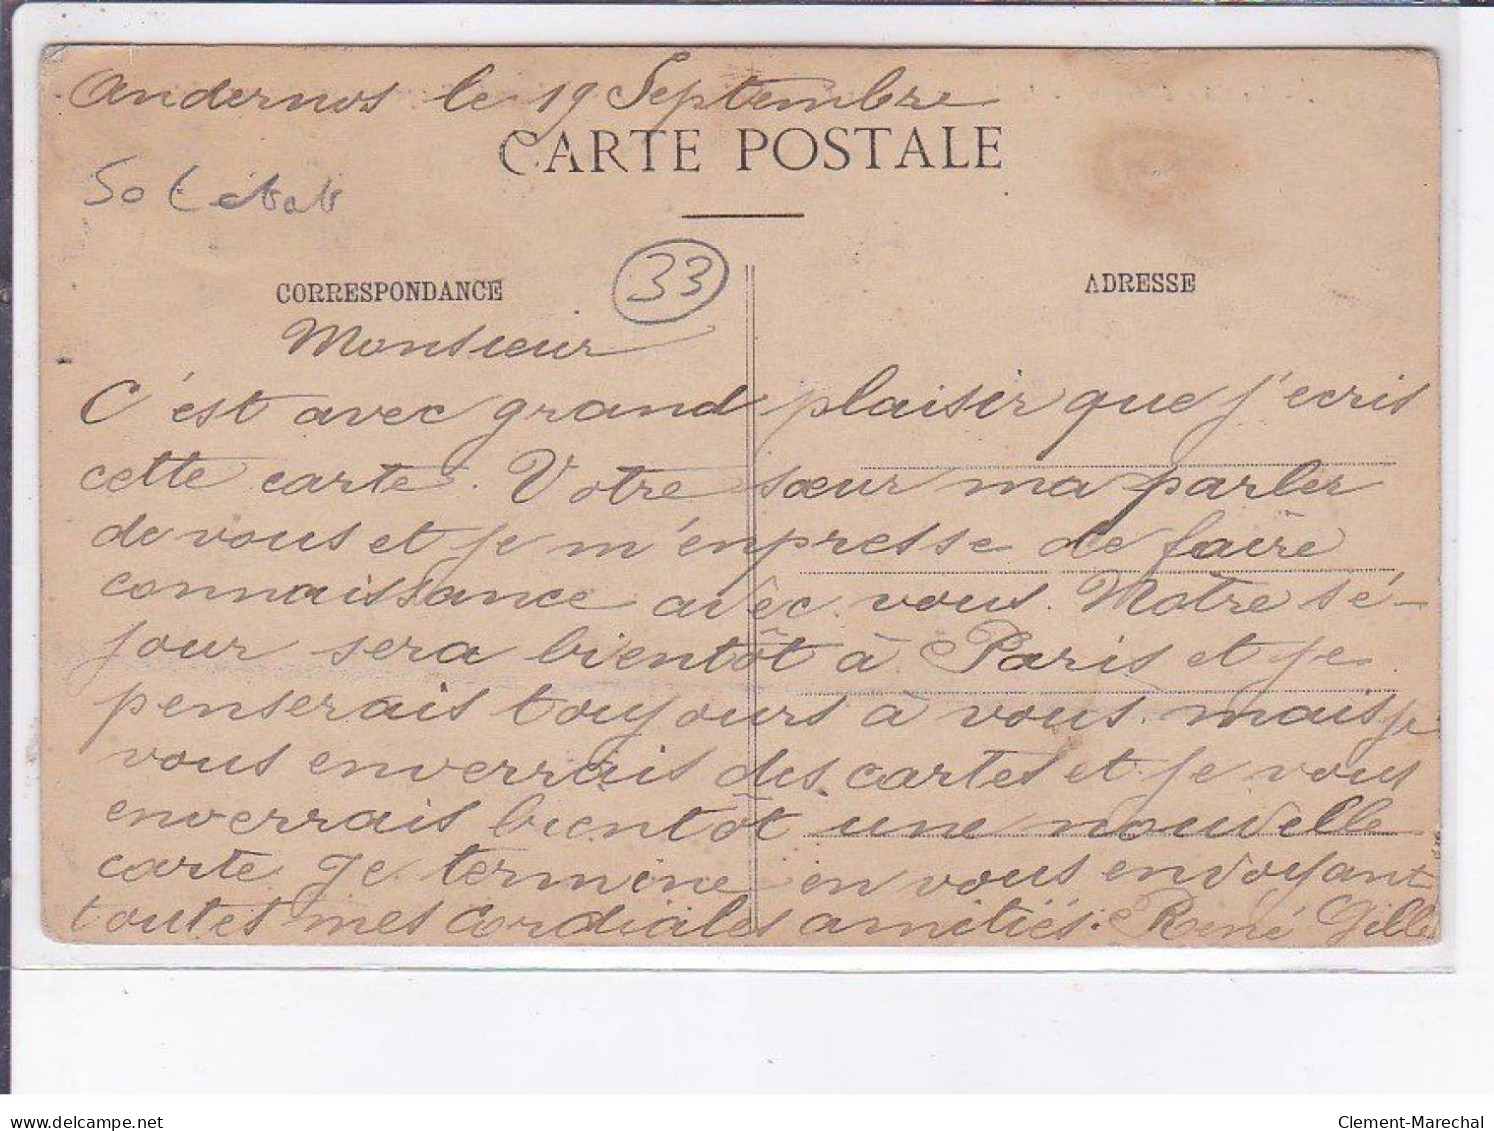 Andernos le 19 Septembre
CARTE POSTALE
50
33
CORRESPONDANCE
ADRESSE
Monsieur
C'est avec grand plaisir que j'ecris
cette carte. Votre sœur ma parler
de vous et je m'enpresse de faire
connaissance avec vous. Notre sé-
jour sera bientôt à Paris et je
penserais toujours à vous mais je
vous enverrais des cartes et je vous
enverrais bientôt une nouvelle
carte je termine en vous envoyant
toutes mes cordiales amitiés. René Gilles
delcampe.net
Clement-Marechal